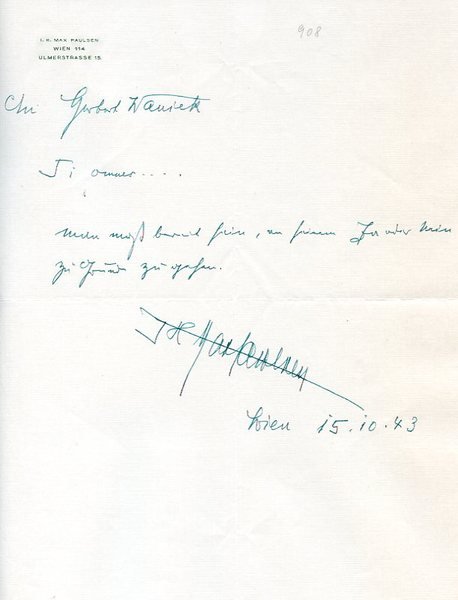 908
I. H. MAX PAULSEN
WIEN 114
ULMERSTRASSE 15
An Herbert Waniek
Si omnes....
man muß bereit sein, an seinem Ja oder Nein
zu Grund zu gehen.
I H Max Paulsen
Wien 15.10.43